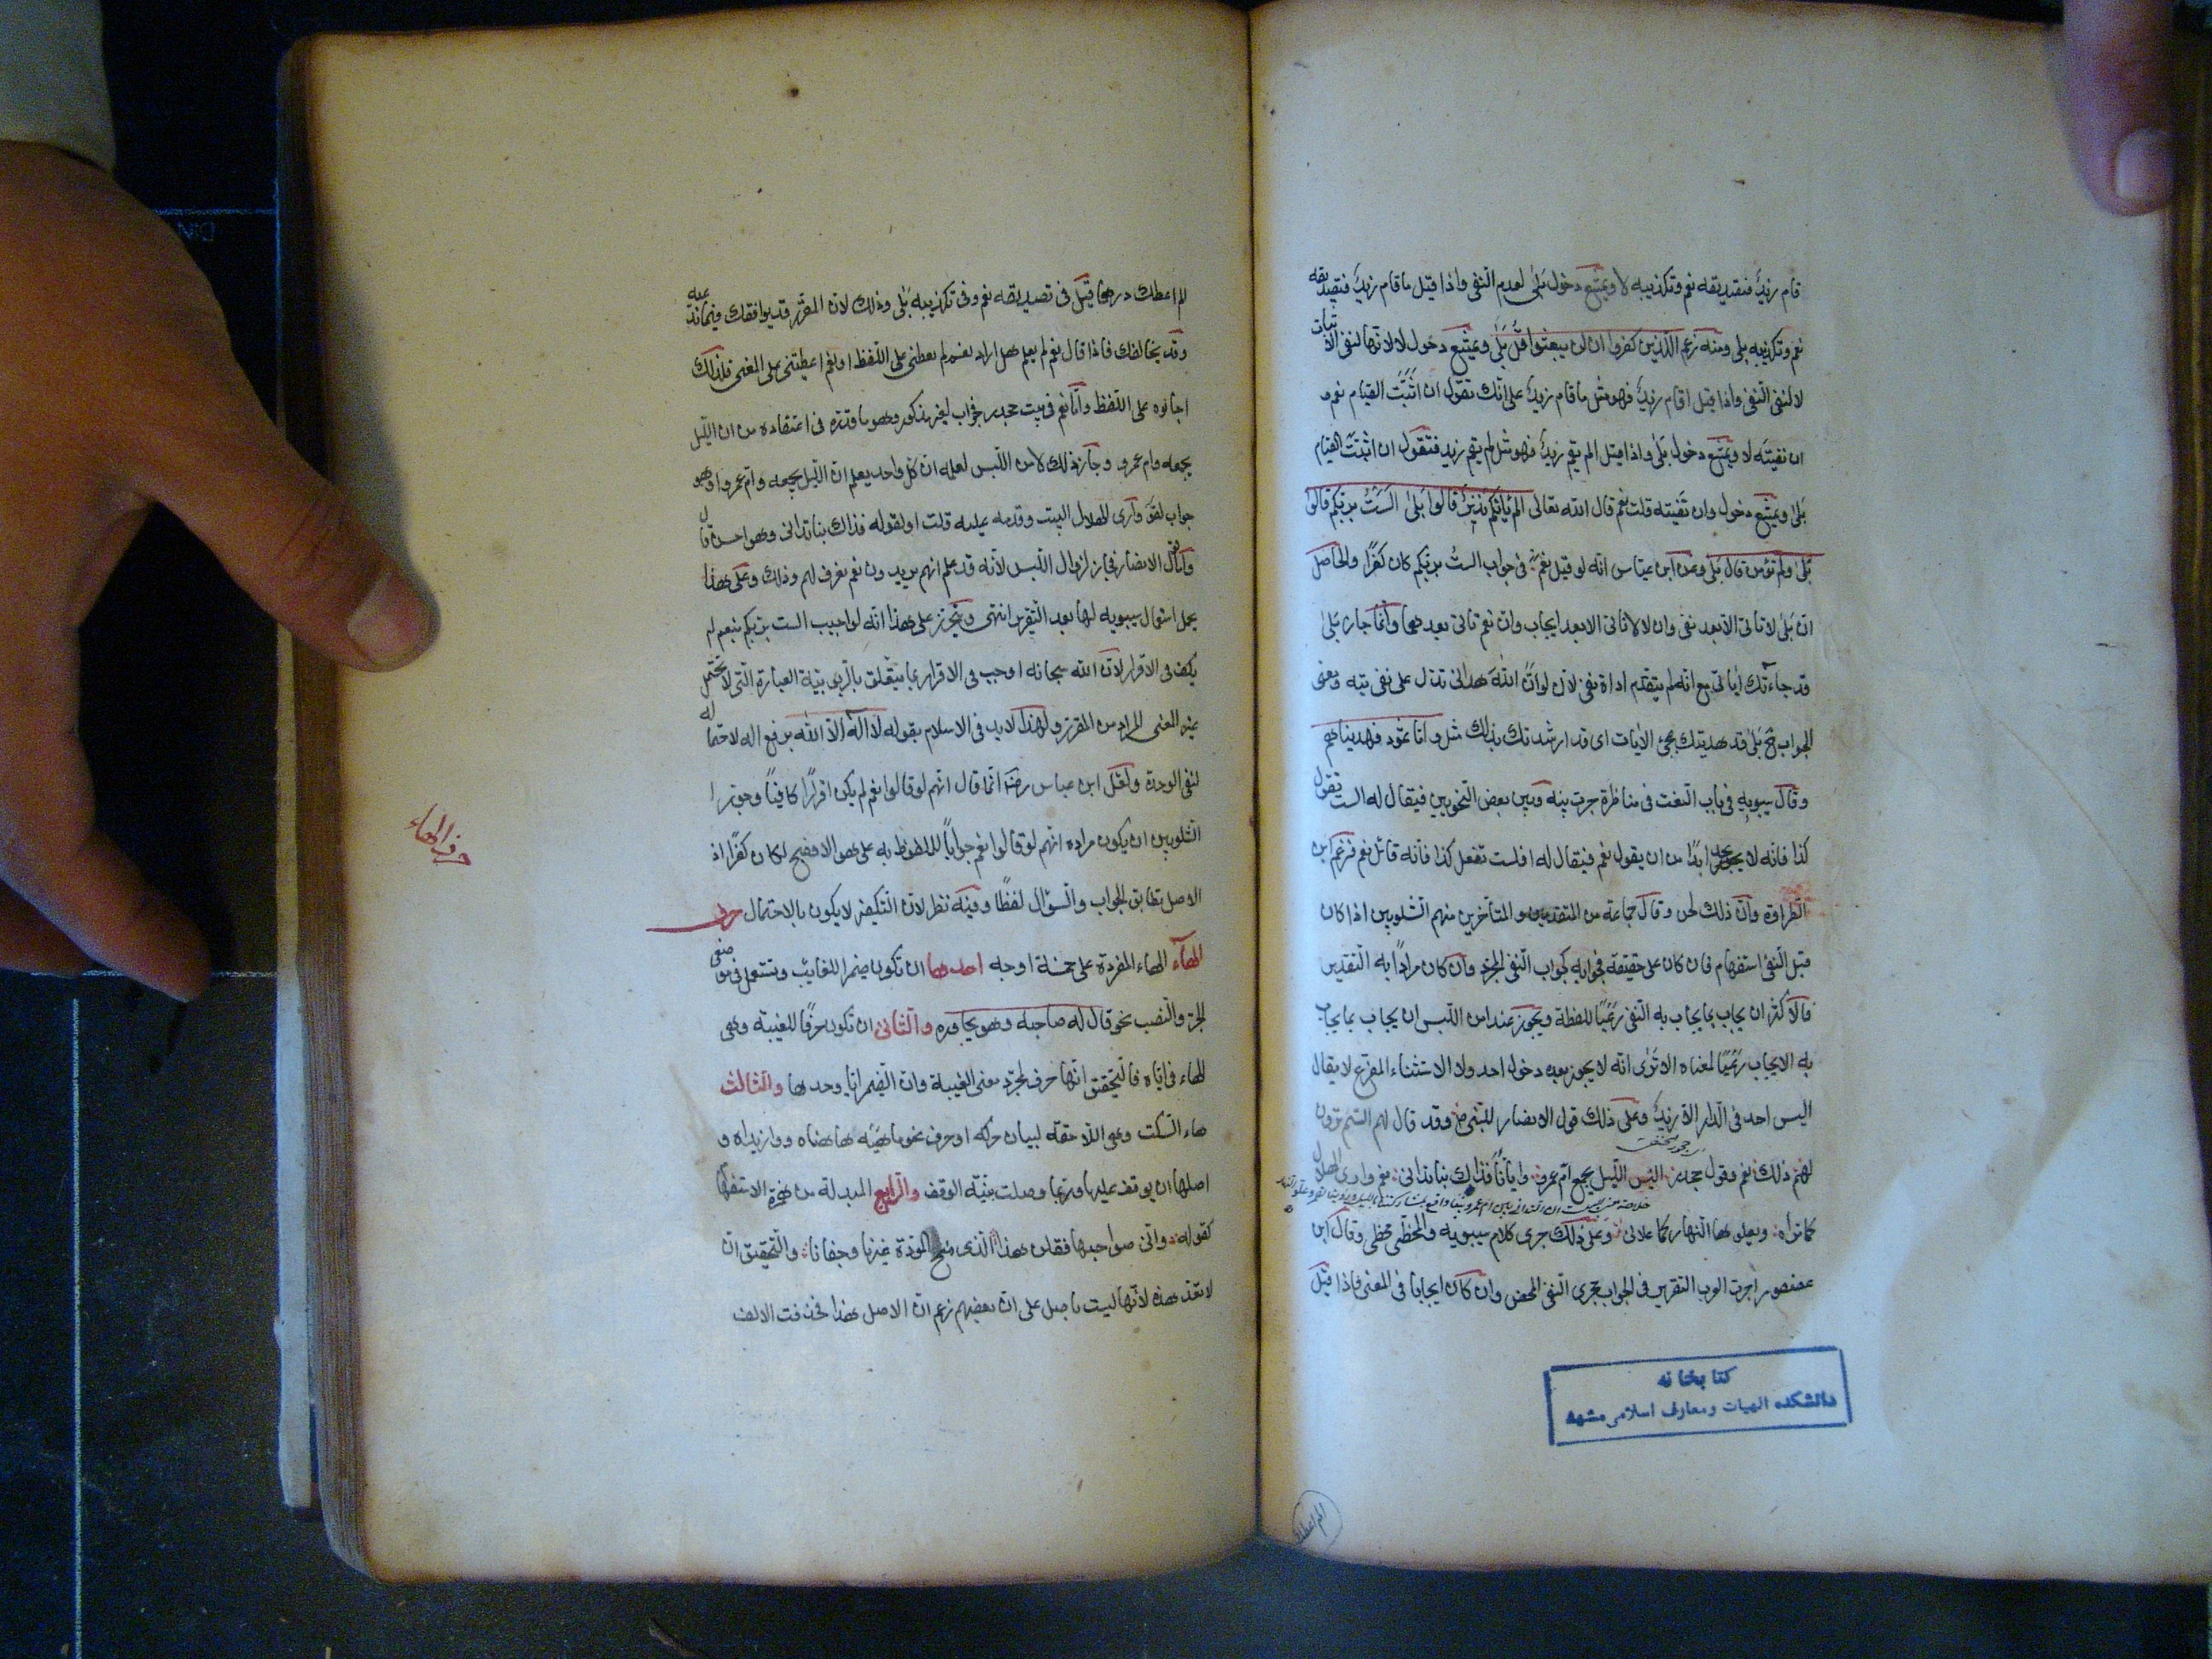 قام زيد فتصديقه نعم وتكذيبه لا ويمتنع دخول بلى لعدم النفى واذا قيل ما قام زيد فتصديقه
نعم وتكذيبه بلى ومنه زعم الذين كفروا ان لن يبعثوا قل بلى ويمتنع دخول لا لانها لنفى الاثبات
لا لنفى النفى واذا قيل اقام زيد فهو مثل ما قام زيد على انك تقول ان اثبت القيام نعم و
ان نفيته لا ويمتنع دخول بلى واذا قيل الم يقم زيد فهو مثل لم يقم زيد فتقول ان اثبتّ القيام
بلى ويمتنع دخول وان نفيته قلت نعم قال الله تعالى الم ياتكم نذير قالوا بلى الست بربكم قالوا
بلى ولم تؤمن قال بلى وعن ابن عباس انه لو قيل نعم فى جواب الست بربكم كان كفرًا والحاصل
ان بلى لا تاتى الا بعد نفى وان لا لا تاتى الا بعد ايجاب وان نعم تاتى بعدهما وانما جاز بلى
قد جاءتك اياتى مع انه لم يتقدم اداة نفى لان لو ان الله هدانى تدل على نفى هدايته ومعنى
الجواب ح بلى قد هديتك بمجئ الايات اى قد ارشدتك بذلك مثل واما ثمود فهديناهم
وقال سيبويه فى باب النعت فى مناظرة جرت بينه وبين بعض النحويين فيقال له الست تقول
كذا فانه لا يجد ابدًا من ان يقول نعم فيقال له افلست تفعل كذا فانه قائل نعم فزعم ابن
الطراوة وان ذلك لحن وقال جماعة من المتقدمين والمتأخرين منهم الشلوبين اذا كان
قبل النفى استفهام فان كان على حقيقته فجوابه كجواب النفى المجرد وان كان مرادًا به التقرير
فالاكثر ان يجاب بما يجاب به النفى رعيًا للفظه ويجوز عند امن اللبس ان يجاب بما يجاب
به الايجاب رعيًا لمعناه الا ترى انه لا يجوز بعده دخول احد ولا الاستثناء المفرغ لا يقال
اليس احد فى الدار الا زيد وعلى ذلك قول الانصار للنبى ص وقد قال لهم الستم ترون
لهم ذلك نعم وقول جحدر اليس الليل يجمع ام عمرو وايانا فذاك بنا تدانى نعم وارى الهلال
كما تراه ويعلوها النهار كما علانى وعلى ذلك جرى كلام سيبويه والمخطى مخطى وقال ابن
عصفور اجرت العرب التقرير فى الجواب مجرى النفى المحض وان كان ايجابا فى المعنى فاذا قيل
كتابخانه
دانشكده الهيات ومعارف اسلامى مشهد
الم اعطك
الم اعطك درهما قيل فى تصديقه نعم وفى تكذيبه بلى وذلك لان المقرر قد يوافقك فيما تدعيه
وقد يخالفك فاذا قال نعم لم يعلم هل اراد نعم لم تعطنى على اللفظ او نعم اعطيتنى على المعنى فلذلك
اجابوه على اللفظ واما نعم فى بيت جحدر فجواب لغير مذكور وهو ما قدره فى اعتقاده من ان الليل
يجمعه وام عمرو وجاز ذلك لامن اللبس لعلمه ان كل واحد يعلم ان الليل يجمعه وام عمرو او هو
جواب لقوله وارى الهلال البيت وقدمه عليه قلت او لقوله فذاك بنا تدانى وهو احسن قال
واما قول الانصار فجاز لزوال اللبس لانه قد علم انهم يريدون نعم نعرف لهم وذلك وعلى هذا
يحمل استعمال سيبويه لها بعد التقرير انتهى ويتحرر على هذا انه لو اجيب الست بربكم بنعم لم
يكف فى الاقرار لان الله سبحانه اوجب فى الاقرار بما يتعلق بالربوبية العبارة التى لا تحتمل
غير المعنى المراد من المقرر ولهذا لا يدخل فى الاسلام بقوله لا اله الا الله برفع اله لاحتماله
لنفى الوحدة ولعل ابن عباس رض انما قال انهم لو قالوا نعم لم يكن اقرارًا كافيًا وجوز
الشلوبين ان يكون مراده انهم لو قالوا نعم جوابًا للملفوظ به على هو الافصح لكان كفرًا اذ
الاصل تطابق الجواب والسؤال لفظًا وفيه نظر لان التكفير لا يكون بالاحتمال حرف
الهاء الهاء المفردة على خمسة اوجه احدها ان تكون ضميرا للغايب وتستعمل فى موضعى
الجر والنصب نحو قال له صاحبه وهو يحاوره والثانى ان تكون حرفًا للغيبة وهى
الهاء فى اياه فالتحقيق انها حرف لمجرد معنى الغيبة وان الضمير ايا وحدها والثالث
هاء السكت وهى اللاحقة لبيان حركة او حرف نحو ماهيه هاهناه ووازيداه و
اصلها ان يوقف عليها وربما وصلت بنية الوقف والرابع المبدلة من همزة الاستفهام
كقوله واتى صواحبها فقلن هذا الذى منح المودة غيرنا وجفانا والتحقيق ان
لا تعد هذه لانها ليست باصل على ان بعضهم زعم ان الاصل هذا فحذفت الالف
حرف الهاء